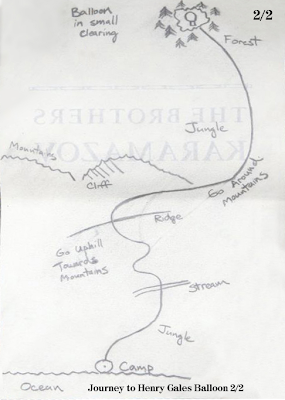 2/2
Balloon
in small
clearing
Forest
THE BROTHERS
KARAMAZOV
Jungle
Mountains
Cliff
Go Around
Mountains
Ridge
Go Uphill
Towards
Mountains
Stream
Jungle
Camp
Ocean
Journey to Henry Gales Balloon 2/2